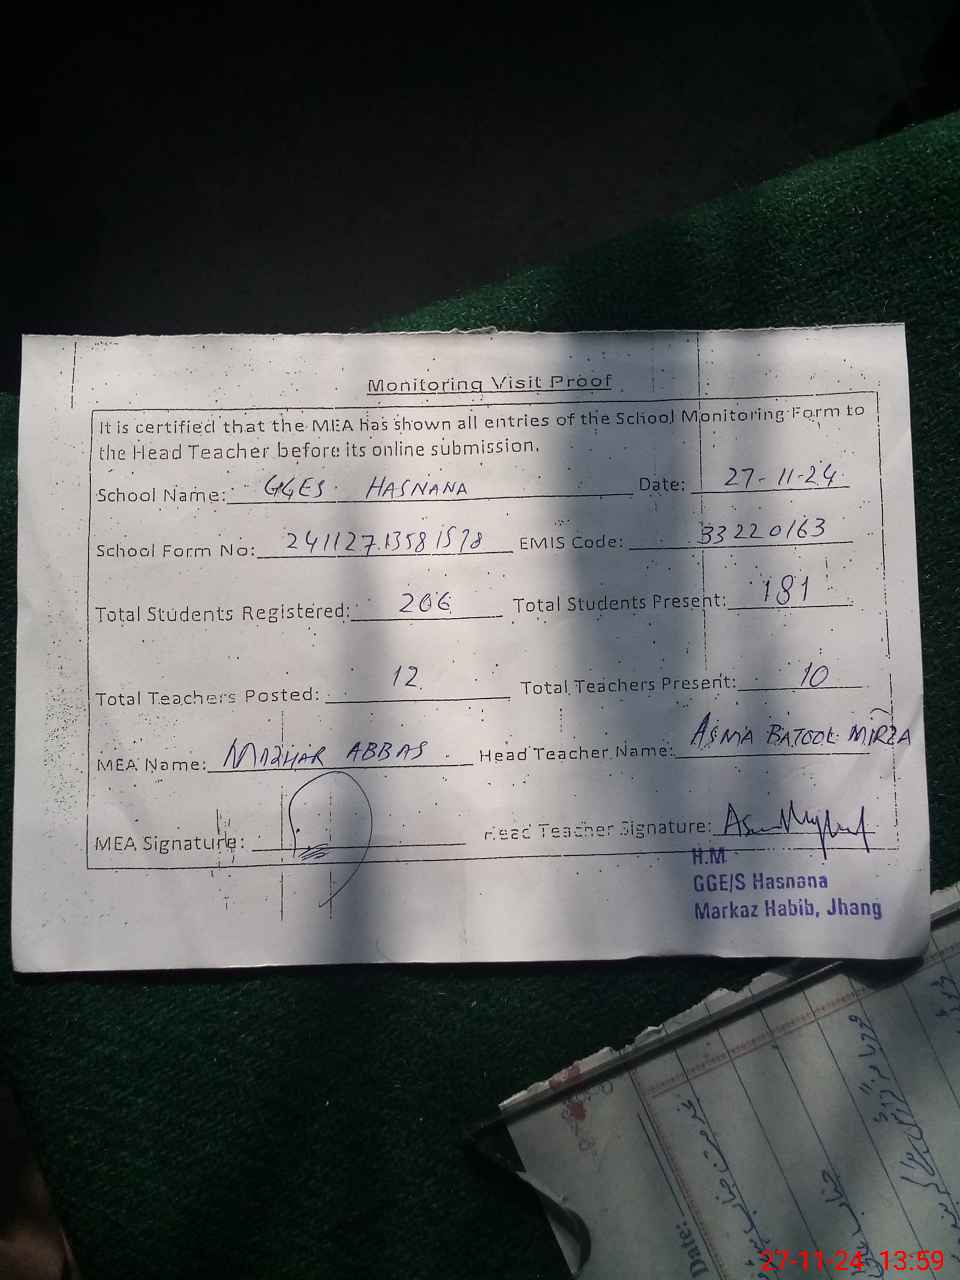 Monitoring Visit Proof
It is certified that the MEA has shown all entries of the School Monitoring Form to
the Head Teacher before its online submission.
School Name: GGES HASNANA Date: 27-11-24
School Form No: EMIS Code: 33220163
Total Students Registered: 206 Total Students Present: 181
Total Teachers Posted: 12 Total Teachers Present: 10
MEA Name: MAZHAR ABBAS Head Teacher Name: ASMA BATOOL MIRZA
MEA Signature: Head Teacher Signature:
H.M
GGE/S Hasnana
Markaz Habib, Jhang
Date:
27-11-24 13:59